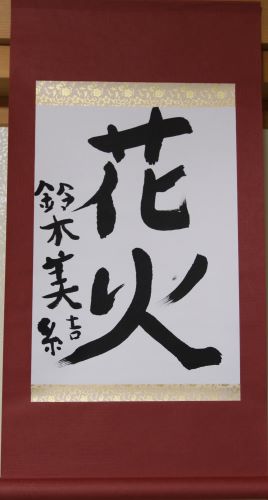 花火
鈴木美結